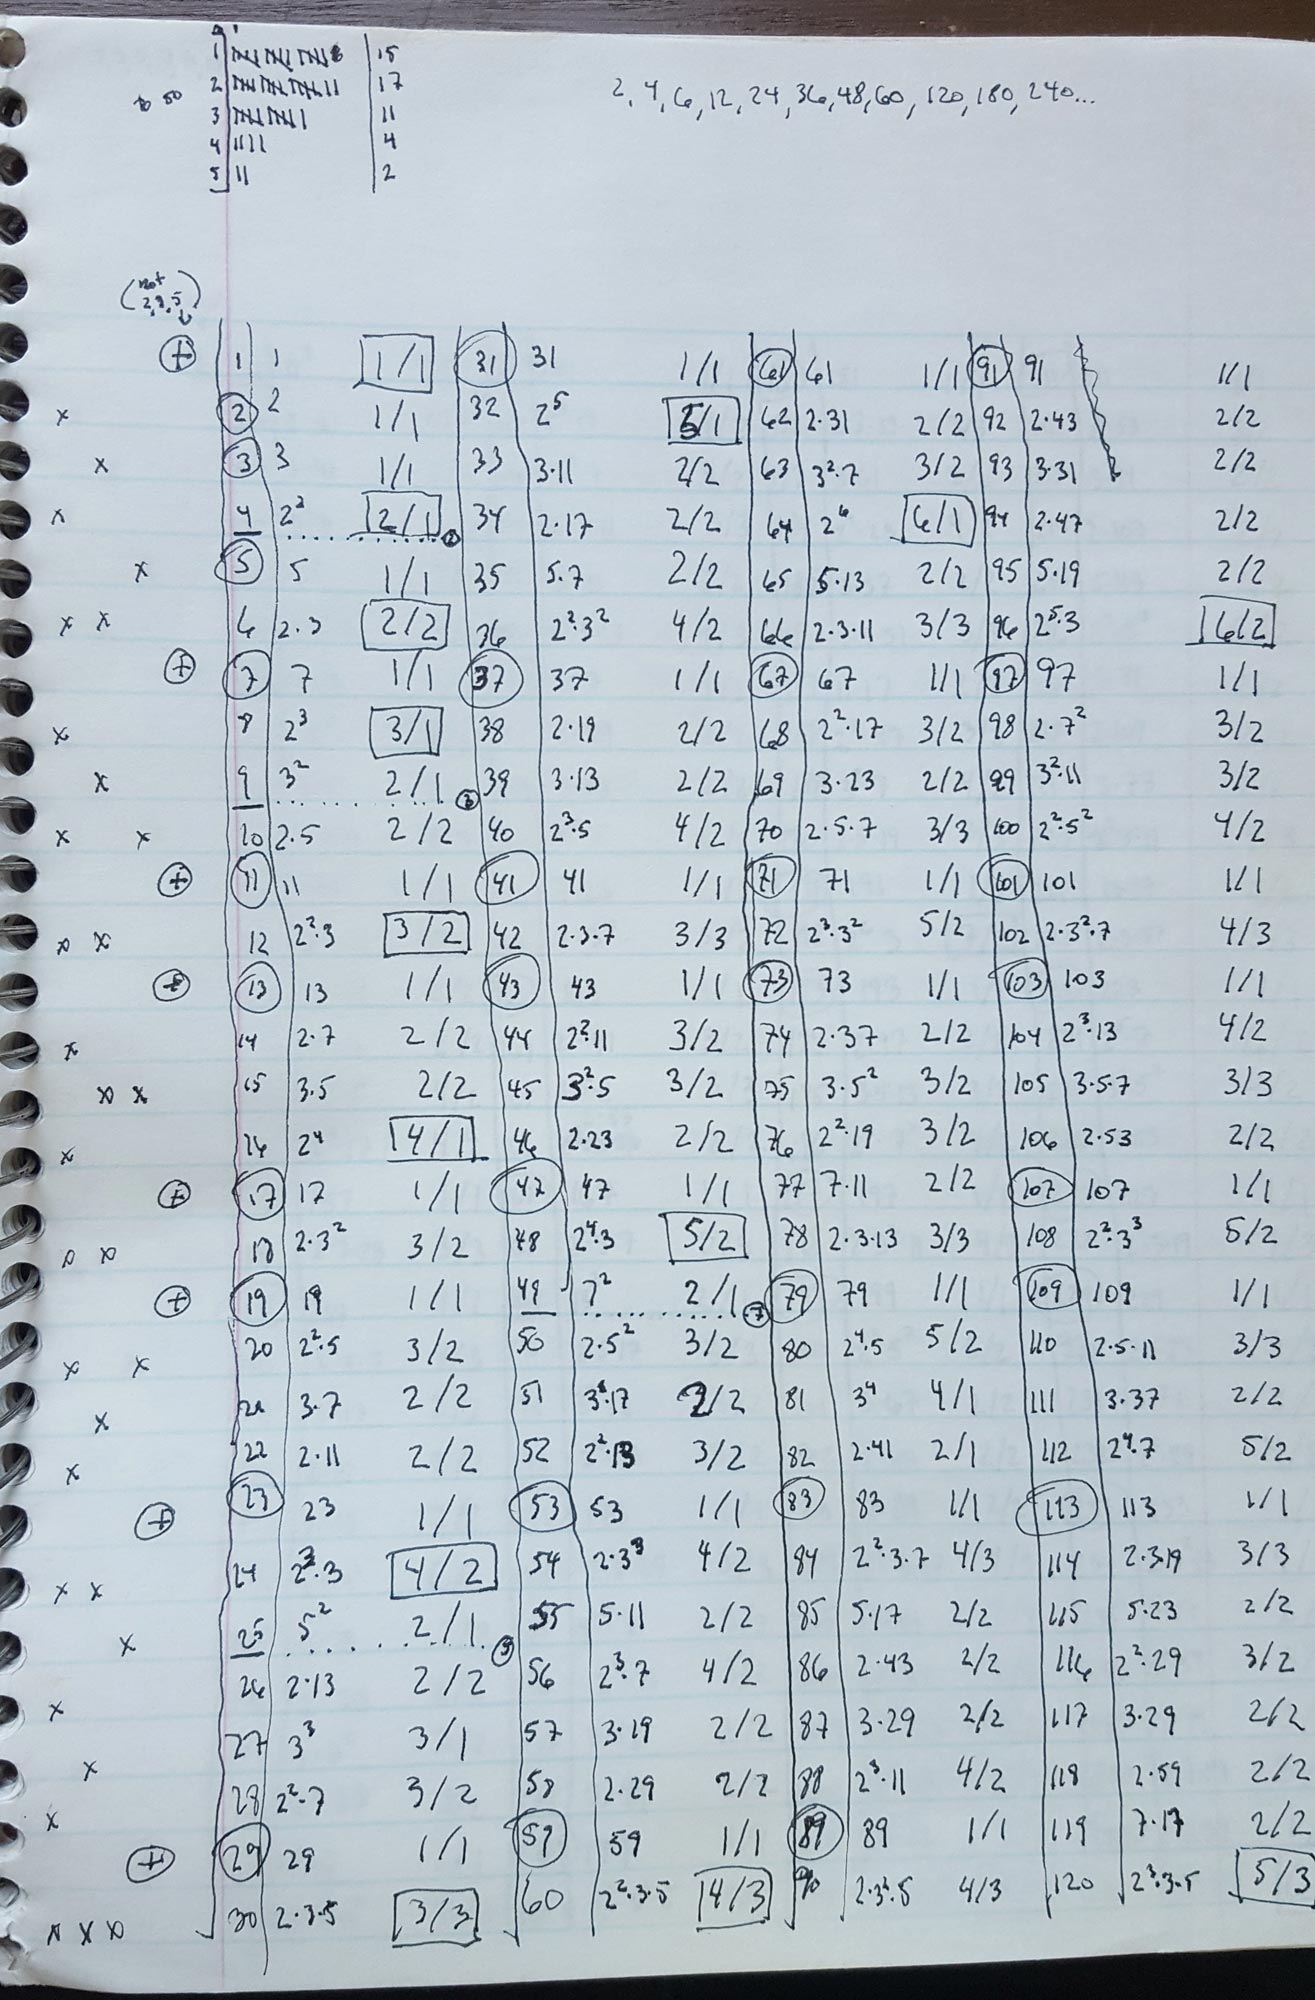 1 15
to 50 2 17 2, 4, 6, 12, 24, 36, 48, 60, 120, 180, 240...
3 11
4 4
5 2
(not 2,3,5)
+ 1 1 1/1 31 31 1/1 61 61 1/1 91 91 1/1
x 2 2 1/1 32 2⁵ 5/1 62 2·31 2/2 92 2·43 2/2
x 3 3 1/1 33 3·11 2/2 63 3²·7 3/2 93 3·31 2/2
x 4 2² 2/1 ② 34 2·17 2/2 64 2⁶ 6/1 94 2·47 2/2
x 5 5 1/1 35 5·7 2/2 65 5·13 2/2 95 5·19 2/2
x x 6 2·3 2/2 36 2²·3² 4/2 66 2·3·11 3/3 96 2⁵·3 6/2
+ 7 7 1/1 37 37 1/1 67 67 1/1 97 97 1/1
x 8 2³ 3/1 38 2·19 2/2 68 2²·17 3/2 98 2·7² 3/2
x 9 3² 2/1 ③ 39 3·13 2/2 69 3·23 2/2 99 3²·11 3/2
x x 10 2·5 2/2 40 2³·5 4/2 70 2·5·7 3/3 100 2²·5² 4/2
+ 11 11 1/1 41 41 1/1 71 71 1/1 101 101 1/1
x x 12 2²·3 3/2 42 2·3·7 3/3 72 2³·3² 5/2 102 2·3²·7 4/3
+ 13 13 1/1 43 43 1/1 73 73 1/1 103 103 1/1
x 14 2·7 2/2 44 2²·11 3/2 74 2·37 2/2 104 2³·13 4/2
x x 15 3·5 2/2 45 3²·5 3/2 75 3·5² 3/2 105 3·5·7 3/3
x 16 2⁴ 4/1 46 2·23 2/2 76 2²·19 3/2 106 2·53 2/2
+ 17 17 1/1 47 47 1/1 77 7·11 2/2 107 107 1/1
x x 18 2·3² 3/2 48 2⁴·3 5/2 78 2·3·13 3/3 108 2²·3³ 5/2
+ 19 19 1/1 49 7² 2/1 ⑦ 79 79 1/1 109 109 1/1
x x 20 2²·5 3/2 50 2·5² 3/2 80 2⁴·5 5/2 110 2·5·11 3/3
x 21 3·7 2/2 51 3·17 2/2 81 3⁴ 4/1 111 3·37 2/2
x 22 2·11 2/2 52 2²·13 3/2 82 2·41 2/1 112 2⁴·7 5/2
+ 23 23 1/1 53 53 1/1 83 83 1/1 113 113 1/1
x x 24 2³·3 4/2 54 2·3³ 4/2 84 2²·3·7 4/3 114 2·3·19 3/3
x 25 5² 2/1 ⑤ 55 5·11 2/2 85 5·17 2/2 115 5·23 2/2
x 26 2·13 2/2 56 2³·7 4/2 86 2·43 2/2 116 2²·29 3/2
x 27 3³ 3/1 57 3·19 2/2 87 3·29 2/2 117 3·29 2/2
x 28 2²·7 3/2 58 2·29 2/2 88 2³·11 4/2 118 2·59 2/2
+ 29 29 1/1 59 59 1/1 89 89 1/1 119 7·17 2/2
x x x 30 2·3·5 3/3 60 2²·3·5 4/3 90 2·3²·5 4/3 120 2³·3·5 5/3